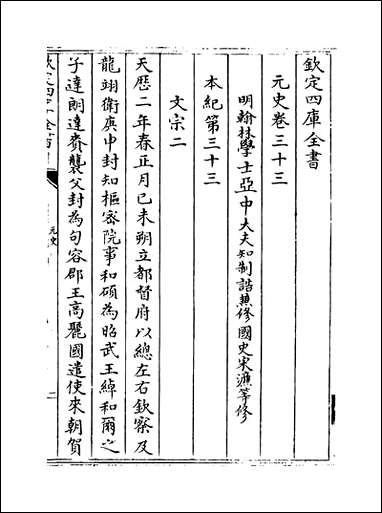 欽定四庫全書
元史卷三十三
明翰林學士亞中大夫知制誥兼修國史宋濂等修
本紀第三十三
文宗二
天歷二年春正月己未朔立都督府以總左右欽察及
龍翊衛庚申封知樞密院事和碩為昭武王綽和爾之
子達朗達賚襲父封為句容郡王高麗國遣使來朝賀
元史